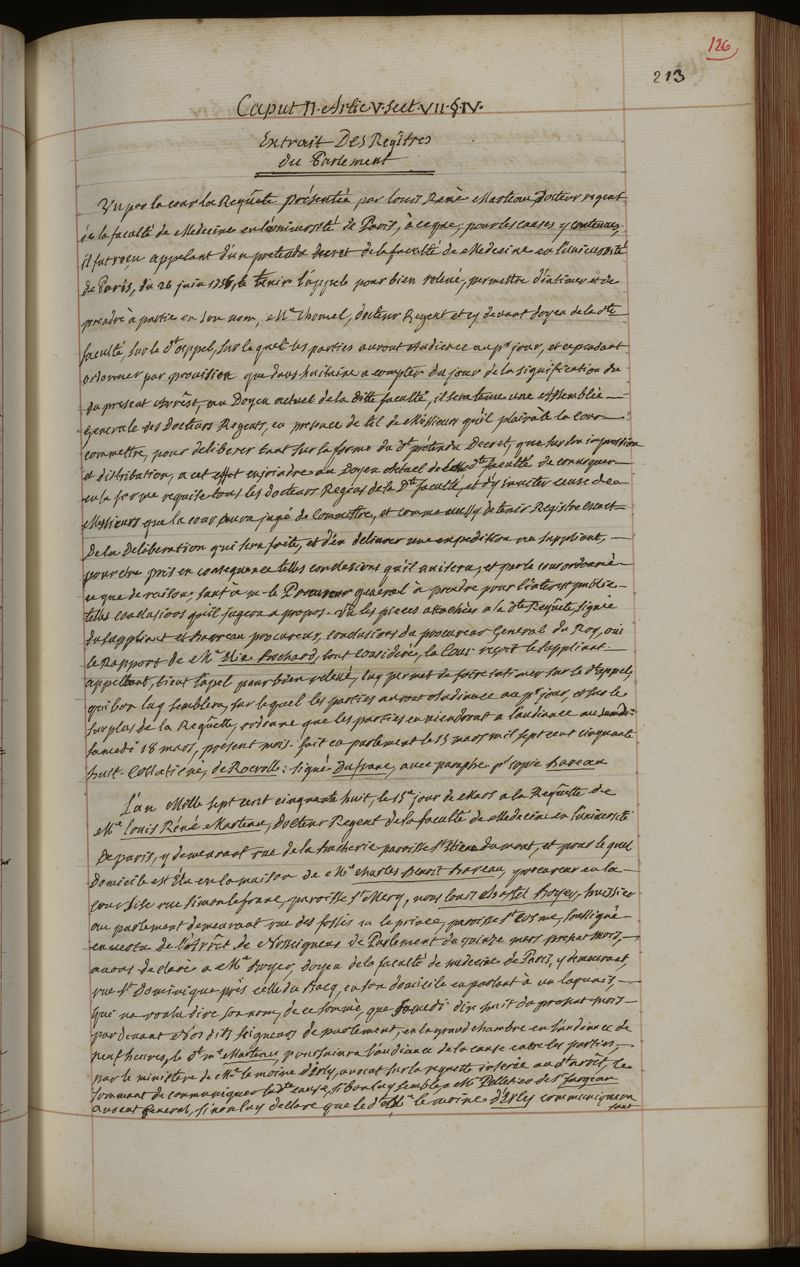 126
213
Caput II. Artic V. Sect. VII. § IV.
Extrait Des Regîtres
du Parlement
Vu par la cour la Requête présentée par Louis René Marteau, Docteur regent
de la faculté de Medecine en l'université de Paris, à ce que, pour les causes y contenues,
il fut reçu appelant d'un pretendu decret de la faculté de Medecine en l'université
de Paris, du 26 juin 1756, le tenir l'appel pour bien relevé, permettre d'intimer et de
prendre à partie en son nom, Me Chomel, docteur Regent et cy devant doyen de la dte
faculté, sur le dt appel, sur lequel les parties auront audience au pr jour, et cependant
ordonner par provision que dans huitaine a compter du jour de la signification du
du present Arrêt, au Doyen actuel de la ditte faculté, il sera tenu une assemblée
Generale des Docteurs Regents, en presence de tel de Messieurs qu'il plaira à la Cour
commettre, pour deliberer tant sur la forme du dt prétendu Decret, que sur son impression
et distribution, a cet effet enjoindre au Doyen actuel de la dte faculté de convoquer
en la forme requise tous les docteurs Regens de la Dte faculté, et d'y inviter ceux de
Messieurs que la cour aura jugé de Commettre, et comme aussy de tenir Registre exact
De la Deliberation qui sera faite, et d'en delivrer une expedition au suppliant,
pour être pris en consequence telles conclusions qu'il avisera, et par la cour ordonné
ce que de raison, sauf à m. le Procureur general à prendre pour l'interest public
telles conclusions qu'il jugera a propos. Vu les pieces attachées a la dte Requête, signée
du suppliant et Baveau procureur, conclusions du procureur General du Roy, oui
le Rapport de Me Elie Bochard, tout consideré, la Cour reçoit le suppliant
appellant, tient l'apel pour bien relevé, luy permet de faire intimer sur le dt appel,
qui bon luy semblera, sur lequel les parties auront audience au pr jour, et sur le
surplus de la Requête, ordonne que les parties en viendront a l'audiance au
samedi 18 mars, present mois. fait en parlement le 15 mars mil sept cent cinquante
huit. Collationé, de Rocrolle: signé Dufranc, avec paraphe pr copie Baveau
L'an Mille sept cent cinquante huit, le 15e jour de Mars a la Requête de
Me Louis Réné Marteau, Docteur Regent de la faculté de Medecine en l'université
de paris, y demeurant rue de la Bucherie paroisse St Etienne du mont, et pour lequel
Domicile est élu en la maison de Me Charles Benoit Baveau, procureur en la
cour sise rue Simon le franc, paroisse St Mery, nous Louis Boyer, huissier
au parlement demeurant rue des fossés m le prince, paroisse St Cosme, soussigné
en vertu de l'Arrêt de Nosseigneurs de Parlement du quinze mars present mois,
avons declaré a Me Boyer, Doyen de la faculté de medecine de Paris, y demeurant,
rue St Dominique près celle du Bacq, en son domicile en parlant à un laquais,
qui n'a voulu dire son nom, de ce sommé, que samedi dix huit du present mois
par devant Nos dits seigneurs de parlement, en la grand chambre en l'audiance de
neuf heures, le dt me Marteau, poursuivra l'audiance de la cause entre les parties,
par le ministère de Me le moine d'Erly, avocat sur la requette inserée au dt arrêt, le
sommant de communiquer la dte cause, si bon luy semble, a Me Pelletier de St Fargeau
avocat General, sinon luy declare que le dt Me le moine d'Erly communiquera
sauf